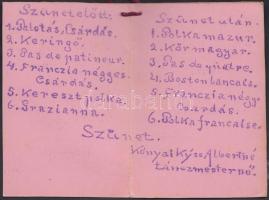 Szünet előtt:
1. Palotás, Csárdás.
2. Keringő.
3. Pas de patineur.
4. Franczia négyes
Csárdás.
5. Kereszt polka.
6. Grazianna.
Szünet után.
1. Polka mazur.
2. Körmagyar.
3. Pas de quatre.
4. Boston lancais.
5. Franczia négy.
Csárdás.
6. Polka francaise.
Szünet.
Albertné
tánczmesternő.